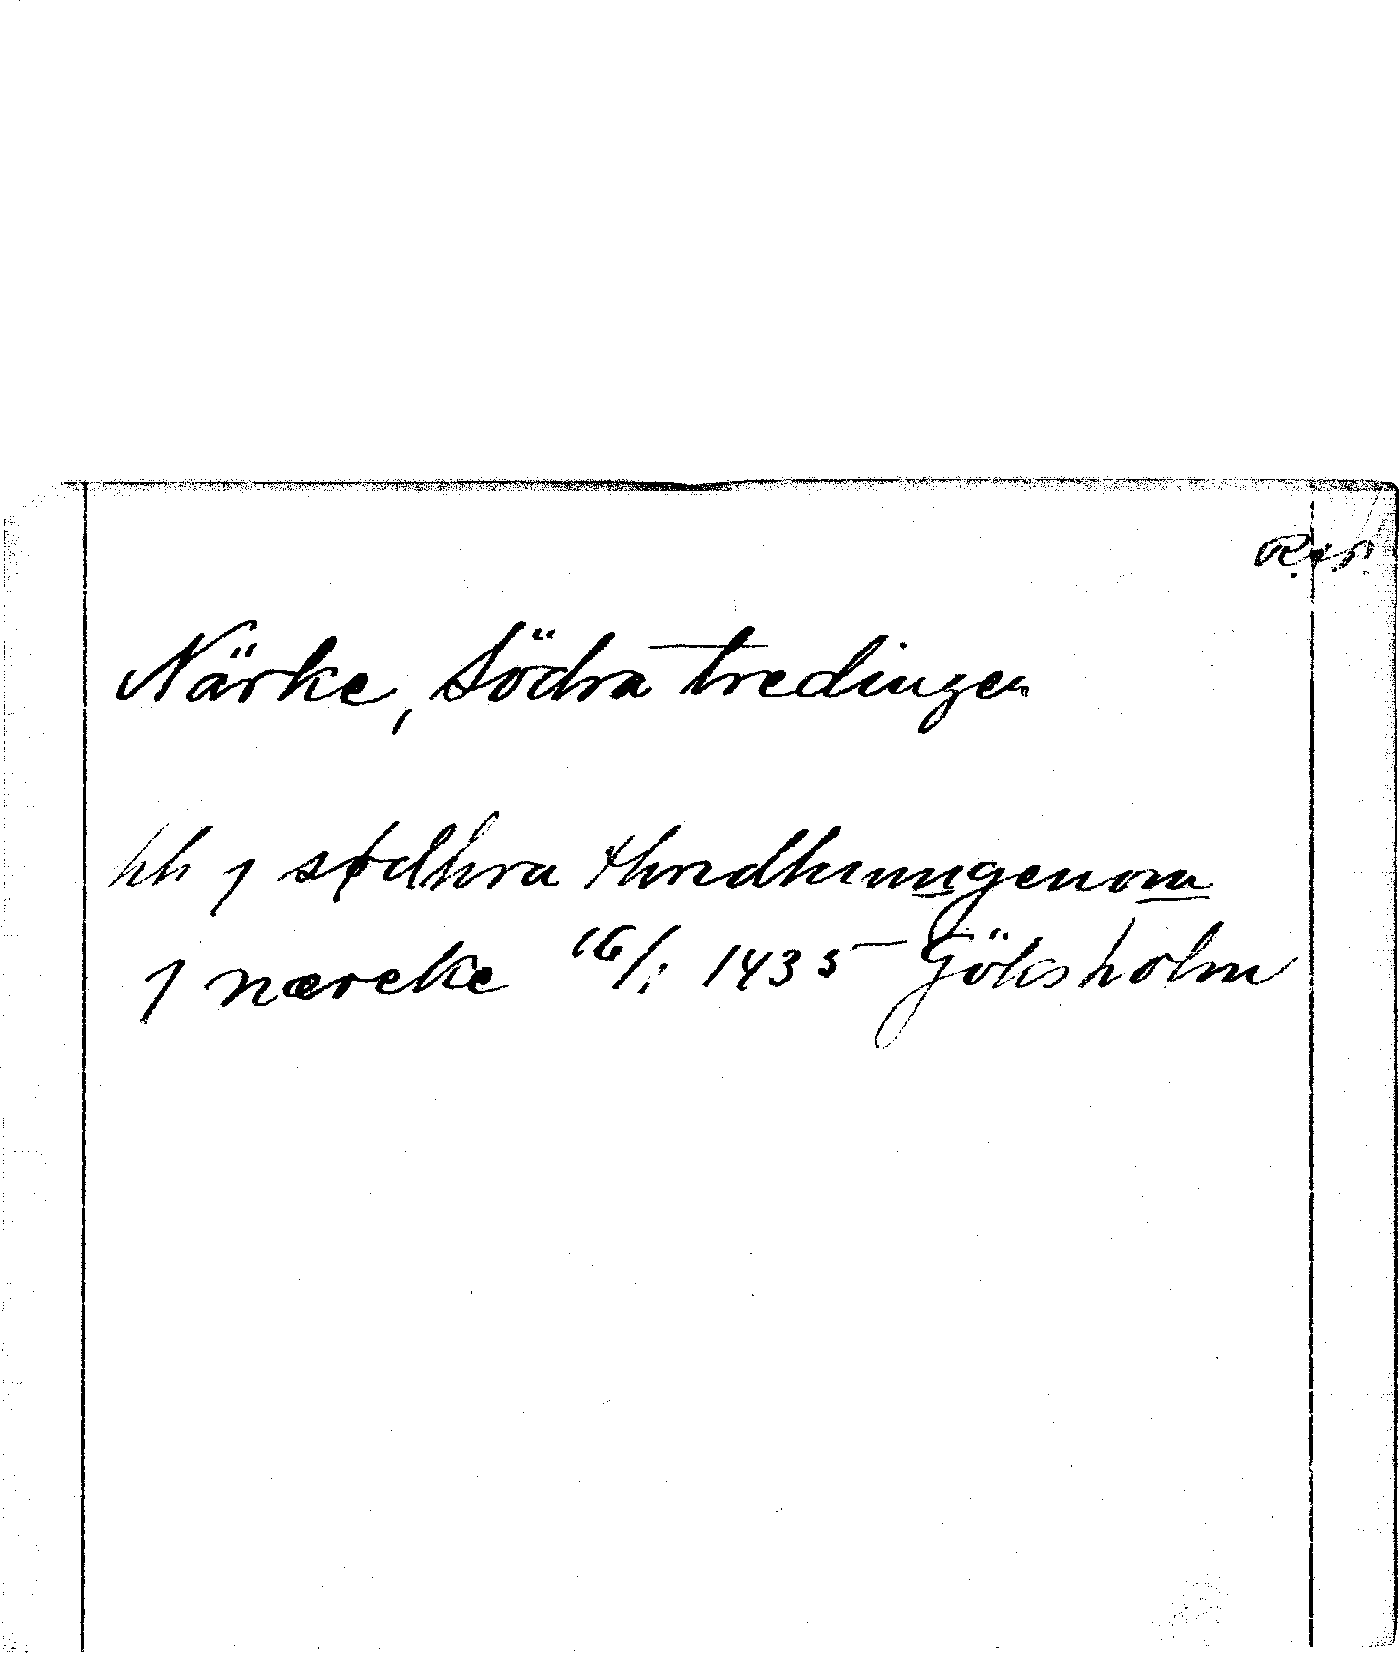 R.ap.
Närke, Södra tredingen
hh j sødhra thredhiunngenom
j nærcke 16/1 1435 Göksholm